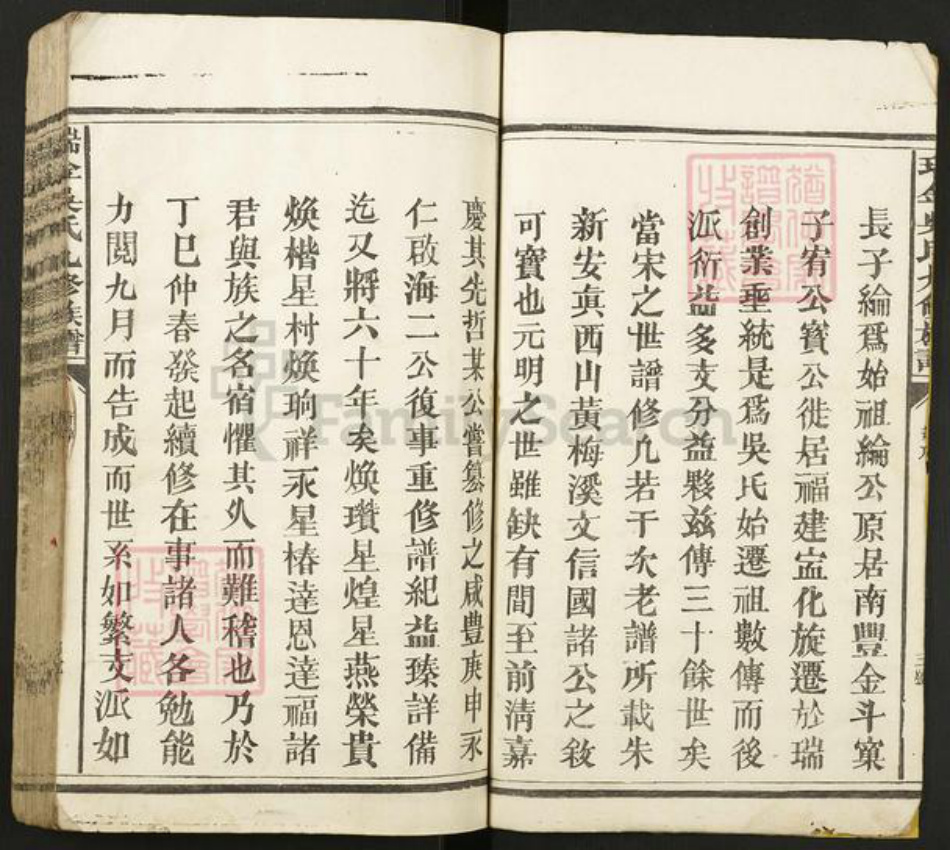 長子綸爲始祖綸公原居南豐金斗窠
子宥公寳公徙居福建寍化旋遷於瑞
創業埀統是爲吳氏始遷祖數傳而後
派衍益多支分益夥兹傳三十餘世矣
當宋之世譜修几若干次老譜所載朱
新安真西山黃梅溪文信國諸公之敘
可寳也元明之世雖缺有間至前淸嘉
慶其先哲某公嘗纂修之咸豐庚申永
仁啟海二公復事重修譜紀益臻詳備
迄又將六十年矣煥瓚星煌星燕榮貴
煥楷星村煥珦祥永星椿達恩達福諸
君與族之名宿懼其久而難稽也乃於
丁巳仲春發起續修在事諸人各勉能
力閲九月而告成而世系如繁支派如
瑞金吳氏九修族譜
FamilySearch